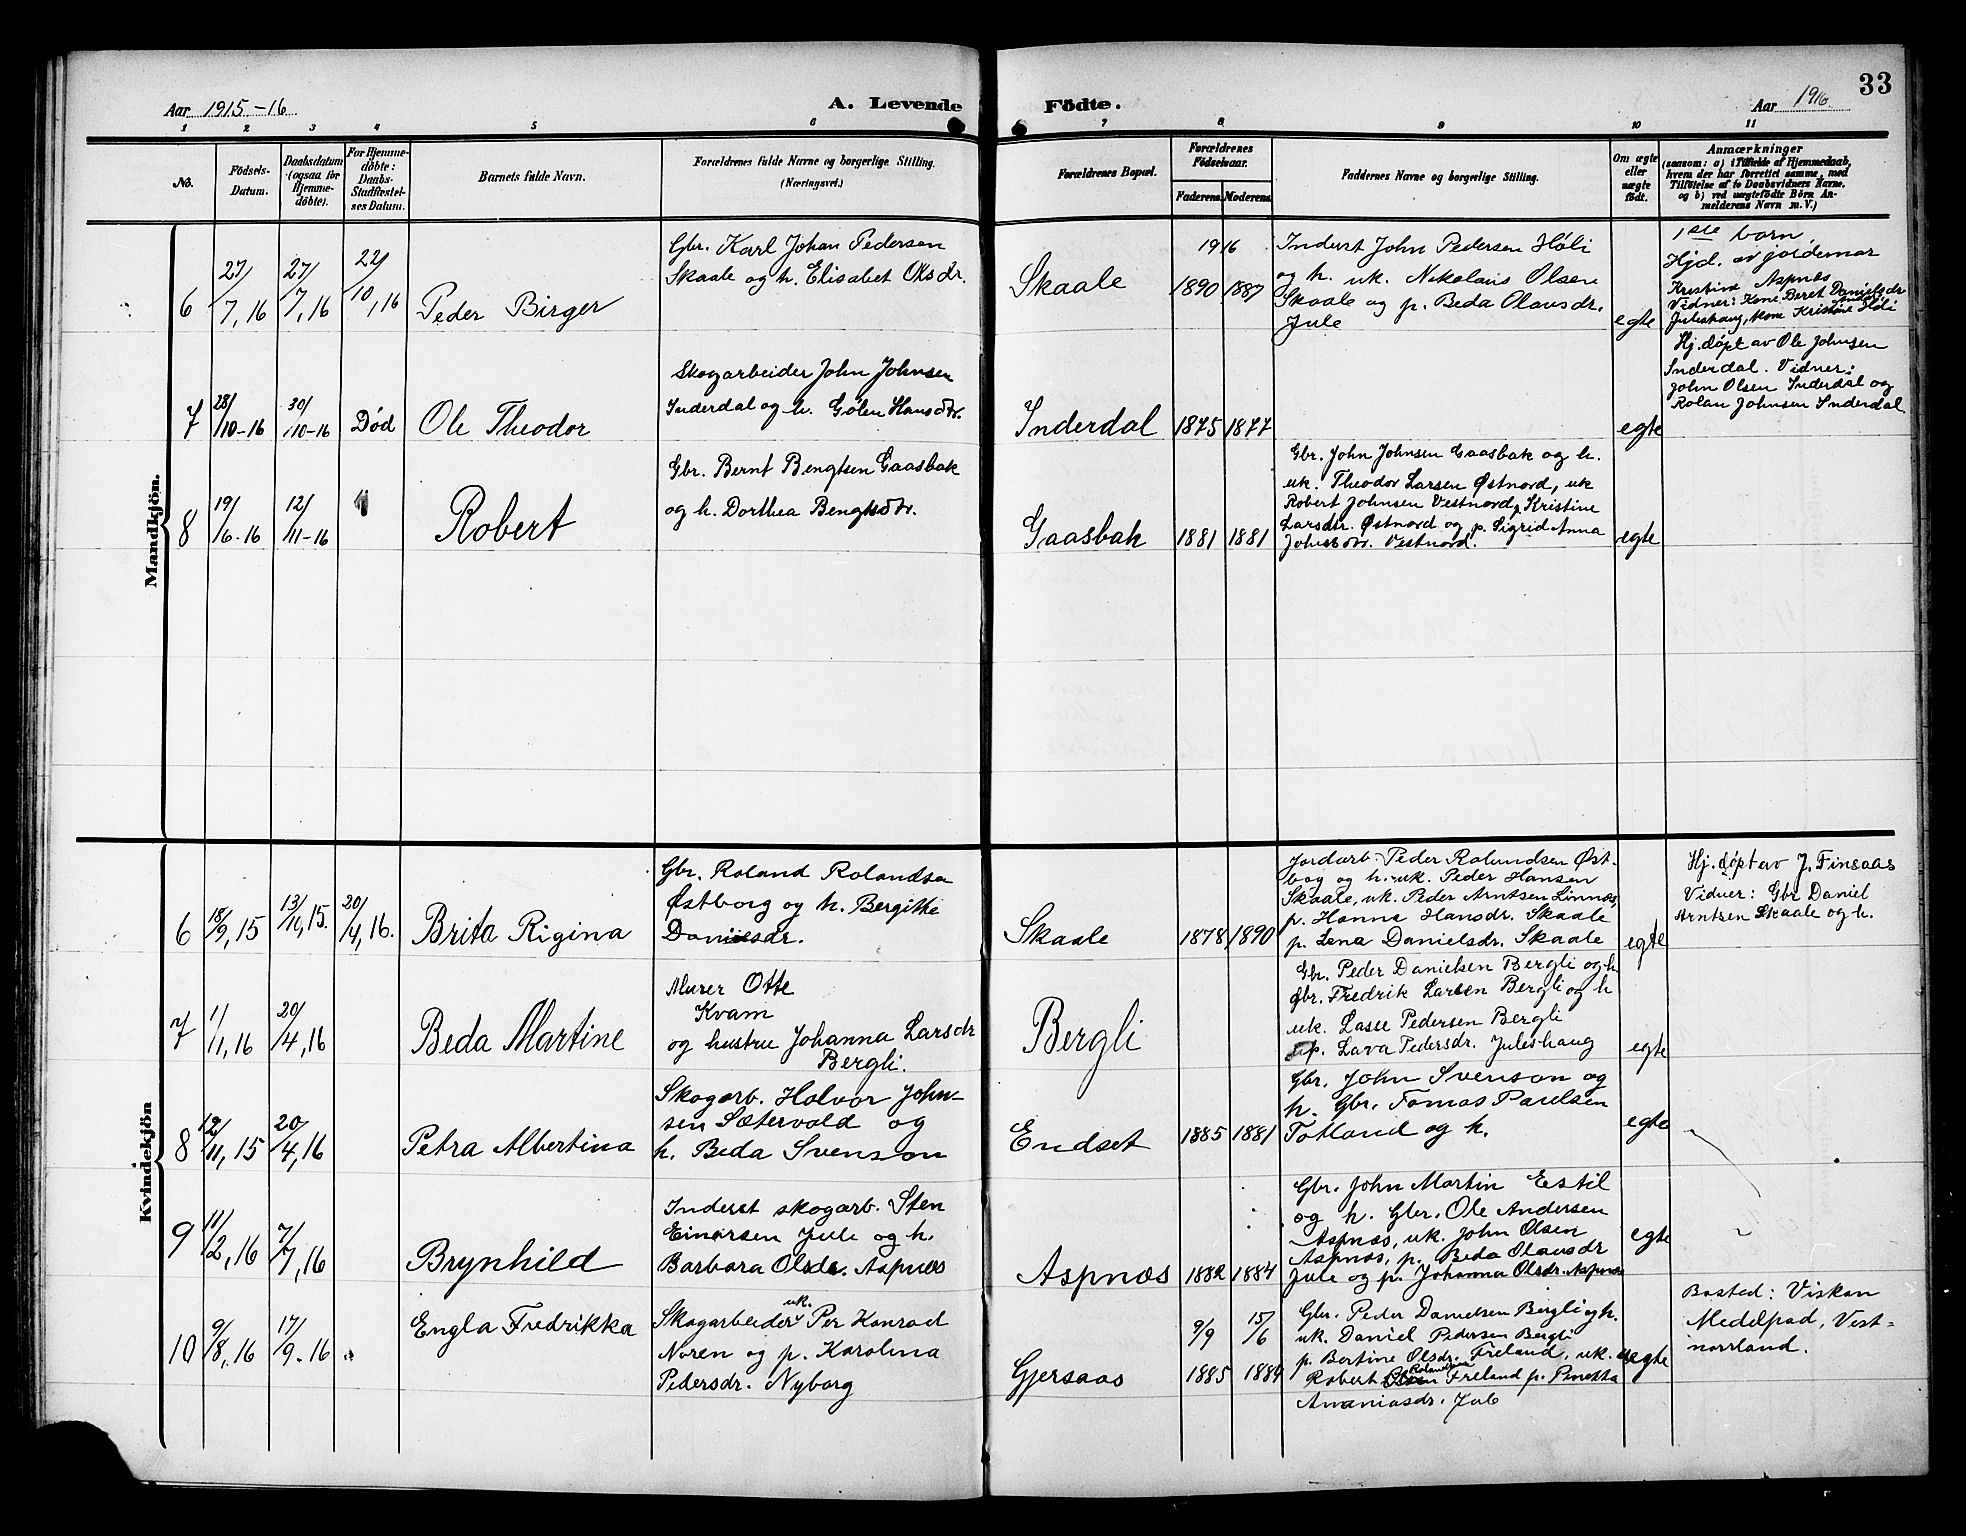 33
Aar 1915-16
A. Levende Födte.
Aar 1916
1 2 3 4 5 6 7 8 9 10 11
No.
Födsels-
Datum.
Daabsdatum
(ogsaa for
Hjemme-
døbte).
For Hjemme-
døbte:
Daabs-
Stadfæstel-
ses Datum.
Barnets fulde Navn.
Forældrenes fulde Navne og borgerlige Stilling.
(Næringsvei.)
Forældrenes Bopæl.
Forældrenes
Fødselsaar.
Faderens Moderens
Faddernes Navne og borgerlige Stilling.
Om ægte
eller
uægte
født.
Anmærkninger
(saasom: a) i Tilfælde af Hjemmedaab,
hvem der har forrettet samme, med
Tilføielse af to Daabsvidners Navne.
og b) ved uægtefødte Børn An-
melderens Navn m. V.)
Mandkjön.
6
27/7, 16
27/7, 16
22/10, 16
Peder Birger
Gbr. Karl Johan Pedersen
Skaale og h. Elisabet Olsdr.
Skaale
1916
1890 1887
Inderst John Pedersen Høli
og h. uk. Nikolaus Olsen
Skaale og p. Beda Olausdr.
Jule
egte
1ste barn
Hjd. av jordemor
Kristine Aspnes
Vidner: Kone Beret Danielsdr
Juleshaug, kone Kristine Høli
7
28/10-16
30/10-16
Død
Ole Theodor
Skogarbeider John Johnsen
Inderdal og h. Gølen Hansdtr.
Inderdal
1875 1877
egte
Hj. døpt av Ole Johnsen
Inderdal. Vidner:
John Olsen Inderdal og
Rolan Johnsen Inderdal
8
19/6-16
12/11-16
Robert
Gbr. Bernt Bengtsen Gaasbak
og h. Dorthea Bengtsdtr.
Gaasbak
1881 1881
Gbr. John Johnsen Gaasbak og h.
uk. Theodor Larsen Østnord, uk
Robert Johnsen Vestnord, Kristine
Larsdtr. Østnord og p. Sigrid Anna
Johnsdtr. Vestnord.
egte
Kvindekjön
6
18/9, 15
13/11, 15.
20/4, 16.
Brita Rigina
Gbr. Roland Rolandsen
Østborg og h. Bergithe
Danielsdr.
Skaale
1878 1890
Jordarb. Peder Rolandsen Øst-
bog og h. uk. Peder Hansen
Skaale, uk. Peder Arntsen Linnæs,
p. Hanna Hansdr. Skaale
p. Lena Danielsdr. Skaale
egte
Hj. døpt av J. Finsaas
Vidner: Gbr Daniel
Arntzen Skaale og h.
7
1/1, 16
20/4, 16
Beda Martine
Murer Otte
Kvam
og hustru Johanna Larsdr
Bergli.
Bergli
Gbr. Peder Danielsen Bergli og h.
Gbr. Fredrik Larsen Bergli og h
uk. Lasse Pedersen Bergli
p. Lava Pedersdr. Juleshaug
egte
8
12/11, 15
20/4, 16
Petra Albertina
Skogarb. Halvor John-
sen Sætervold og
h. Beda Svenson
Endset
1885 1881
Gbr. John Svenson og
h. Gbr. Tomas Paulsen
Totland og h.
egte
9
11/2, 16
7/7, 16
Brynhild
Inderst skogarb. Sten
Einarsen Jule og h.
Barbara Olsdr. Aspnæs
Aspnæs
1882 1884
Gbr. John Martin Estil
og h. Gbr. Ole Andersen
Aspnæs, uk. John Olsen
Aspnæs, p. Beda Olausdr
Jule og p. Johanna Olsdr. Aspnæs
egte
10
9/8, 16
17/9-16
Engla Fredrikka
Skogarbeider uk. Per Konrad
Noren og p. Karolina
Pedersdr. Nyborg
Gjersaas
9/9 15/6
1885 1884
Gbr. Peder Danielsen Bergli og h.
uk. Daniel Pedersen Bergli
p. Bertine Olsdr. Freland, uk.
Robert Rolandsen Freland p. Pinetta
Ananiasdr. Jule
uegte
Bosted: Viskan
Medelpad, Vest-
norrland.